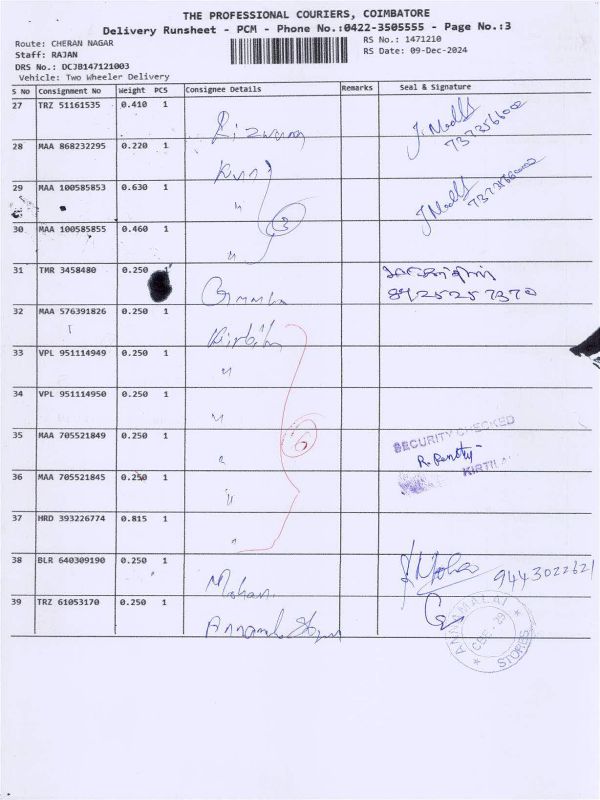 THE PROFESSIONAL COURIERS, COIMBATORE
Delivery Runsheet - PCM - Phone No.:0422-3505555 - Page No.:3
Route: CHERAN NAGAR
RS No.: 1471210
Staff: RAJAN
RS Date: 09-Dec-2024
DRS No.: DCJB147121003
Vehicle: Two Wheeler Delivery
S No Consignment No Weight PCS Consignee Details Remarks Seal & Signature
27 TRZ 51161535 0.410 1
7373566002
28 MAA 868232295 0.220 1
29 MAA 100585853 0.630 1 "
3
30 MAA 100585855 0.460 1 "
31 TMR 3458480 0.250 1
8925257370
32 MAA 576391826 0.250 1
33 VPL 951114949 0.250 1 "
34 VPL 951114950 0.250 1 "
35 MAA 705521849 0.250 1 "
6
SECURITY CHECKED
36 MAA 705521845 0.250 1 "
37 HRD 393226774 0.815 1 "
38 BLR 640309190 0.250 1 Mohan
9443022621
39 TRZ 61053170 0.250 1
ANNAMALAI STORES